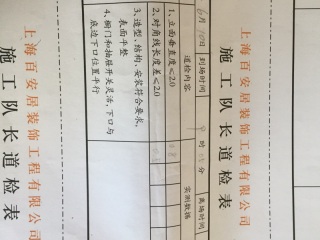 上海百安居装饰工程有限公司
施工队长道检表
月 日 到场时间 时 分 离场时间
道检内容 实测数据
1、立面垂直度≤2.0
2、对角线长度差≤2.0
3、造型、结构、安装符合要求、
表面平整
4、橱门和抽屉开关灵活,下口与
底边下口位置平行
上海百安居装饰工程有限公司
施工队长道检表